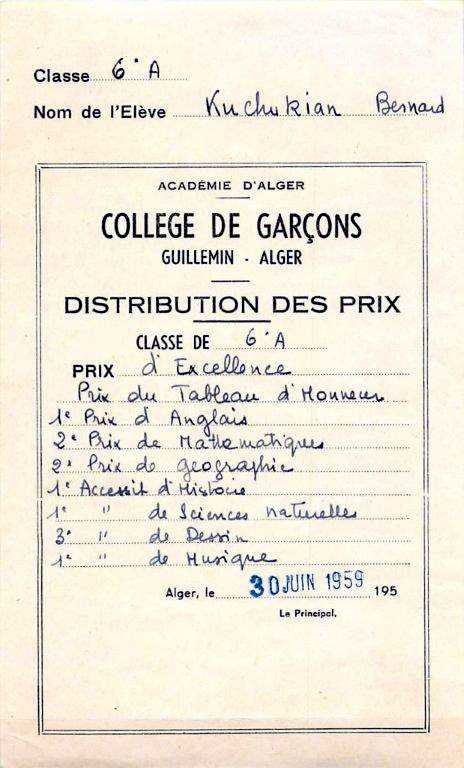 Classe 6e A
Nom de l'Elève Kuchukian Bernard
ACADÉMIE D'ALGER
COLLEGE DE GARÇONS
GUILLEMIN - ALGER
DISTRIBUTION DES PRIX
CLASSE DE 6e A
PRIX d'Excellence
Prix du Tableau d'Honneur
1e Prix d'Anglais
2e Prix de Mathematiques
2e Prix de geographie
1e Accessit d'Histoire
1e " de Sciences naturelles
3e " de Dessin
1e " de Musique
Alger, le 30 JUIN 1959 195
Le Principal,